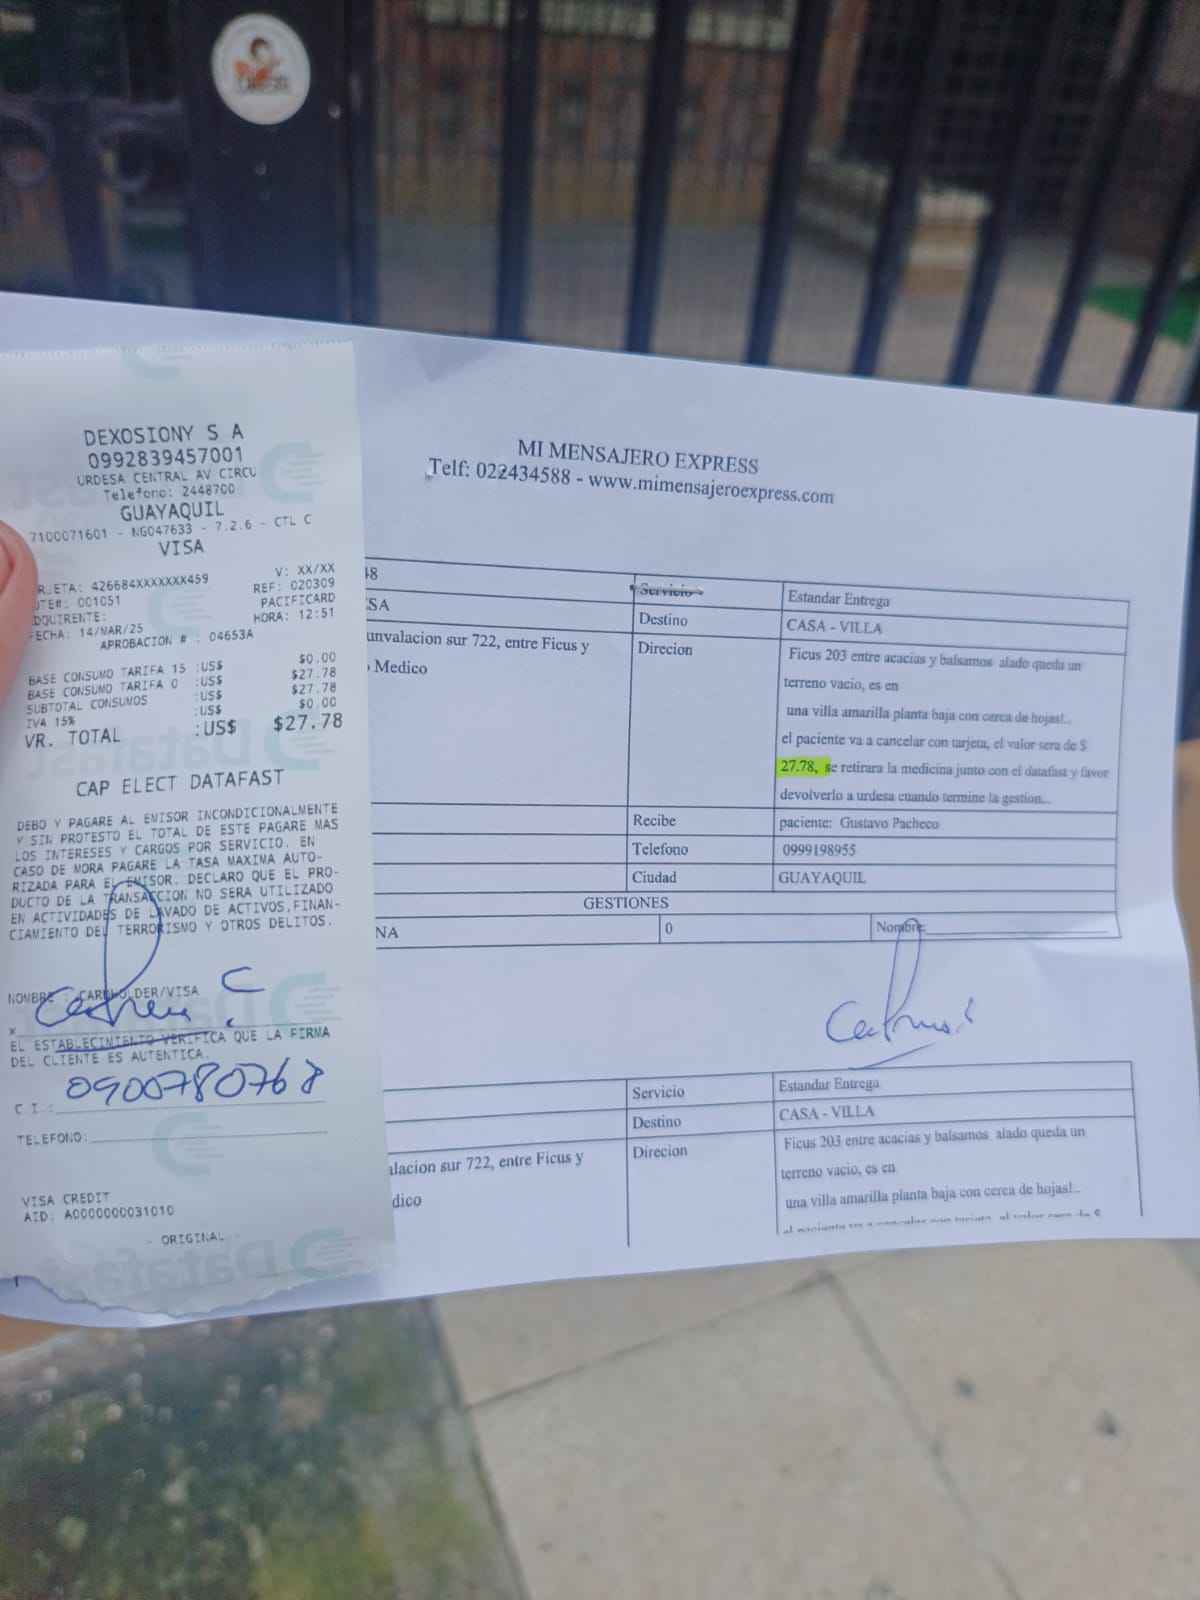 DEXOSIONY S A
0992839457001
URDESA CENTRAL AV CIRCU
Telefono: 2448700
GUAYAQUIL
7100071601 - NG047633 - 7.2.6 - CTL C
VISA
RJETA: 426684XXXXXXX459 V: XX/XX
OTE#: 001051 REF: 020309
DQUIRENTE: PACIFICARD
ECHA: 14/MAR/25 HORA: 12:51
APROBACION # : 04653A
BASE CONSUMO TARIFA 15 :US$ $0.00
BASE CONSUMO TARIFA 0 :US$ $27.78
SUBTOTAL CONSUMOS :US$ $27.78
IVA 15% :US$ $0.00
VR. TOTAL :US$ $27.78
CAP ELECT DATAFAST
DEBO Y PAGARE AL EMISOR INCONDICIONALMENTE
Y SIN PROTESTO EL TOTAL DE ESTE PAGARE MAS
LOS INTERESES Y CARGOS POR SERVICIO. EN
CASO DE MORA PAGARE LA TASA MAXIMA AUTO-
RIZADA PARA EL EMISOR. DECLARO QUE EL PRO-
DUCTO DE LA TRANSACCION NO SERA UTILIZADO
EN ACTIVIDADES DE LAVADO DE ACTIVOS,FINAN-
CIAMIENTO DEL TERRORISMO Y OTROS DELITOS.
NOMBRE : CARDHOLDER/VISA
x
EL ESTABLECIMIENTO VERIFICA QUE LA FIRMA
DEL CLIENTE ES AUTENTICA.
C I.: 0900780768
TELEFONO:
VISA CREDIT
AID: A0000000031010
- ORIGINAL -
MI MENSAJERO EXPRESS
Telf: 022434588 - www.mimensajeroexpress.com
48 Servicio Estandar Entrega
SA Destino CASA - VILLA
unvalacion sur 722, entre Ficus y Direcion Ficus 203 entre acacias y balsamos alado queda un
Medico terreno vacio, es en
una villa amarilla planta baja con cerca de hojas!..
el paciente va a cancelar con tarjeta, el valor sera de $
27.78, se retirara la medicina junto con el datafast y favor
devolverlo a urdesa cuando termine la gestion...
Recibe paciente: Gustavo Pacheco
Telefono 0999198955
Ciudad GUAYAQUIL
GESTIONES
NA 0 Nombre:
Servicio Estandar Entrega
Destino CASA - VILLA
alacion sur 722, entre Ficus y Direcion Ficus 203 entre acacias y balsamos alado queda un
dico terreno vacio, es en
una villa amarilla planta baja con cerca de hojas!..
el paciente va a cancelar con tarjeta, el valor sera de $